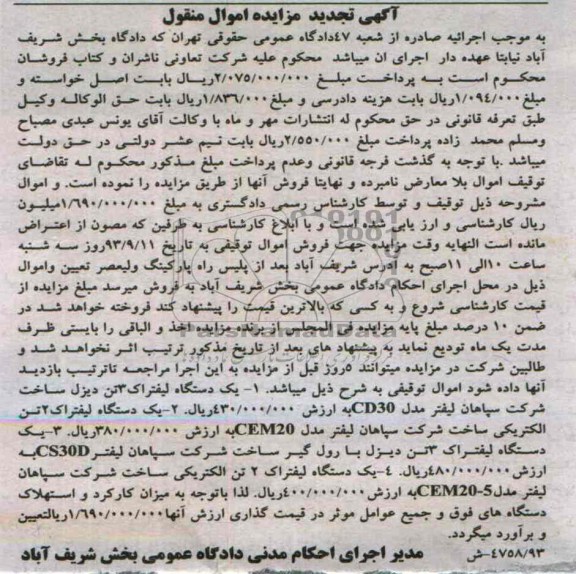 آگهی تجدید مزایده اموال منقول
به موجب اجرائیه صادره از شعبه ۴۷دادگاه عمومی حقوقی تهران که دادگاه بخش شریف
آباد نیابتا عهده دار اجرای ان میباشد محکوم علیه شرکت تعاونی ناشران و کتاب فروشان
محکوم است به پرداخت مبلغ ۲/۰۷۵/۰۰۰/۰۰۰ریال بابت اصل خواسته و
مبلغ۱/۰۹۴/۰۰۰ریال بابت هزینه دادرسی و مبلغ۱/۸۳۶/۰۰۰ریال بابت حق الوکاله وکیل
طبق تعرفه قانونی در حق محکوم له انتشارات مهر و ماه با وکالت آقای یونس عبدی مصباح
ومسلم محمد زاده پرداخت مبلغ ۲/۵۵۰/۰۰۰ریال بابت نیم عشر دولتی در حق دولت
میباشد .با توجه به گذشت فرجه قانونی وعدم پرداخت مبلغ مذکور محکوم له تقاضای
توقیف اموال بلا معارض نامبرده و نهایتا فروش آنها از طریق مزایده را نموده است. و اموال
مشروحه ذیل توقیف و توسط کارشناس رسمی دادگستری به مبلغ ۱/۶۹۰/۰۰۰/۰۰۰میلیون
ریال کارشناسی و ارز یابی شده است و با ابلاغ کارشناسی به طرفین که مصون از اعتراض
مانده است النهایه وقت مزایده جهت فروش اموال توقیفی به تاریخ ۹۳/۹/۱۱روز سه شنبه
ساعت ۱۰الی ۱۱صبح به آدرس شریف آباد بعد از پلیس راه پارکینگ ولیعصر تعیین واموال
ذیل در محل اجرای احکام دادگاه عمومی بخش شریف آباد به فروش میرسد مبلغ مزایده از
قیمت کارشناسی شروع و به کسی که بالاترین قیمت را پیشنهاد کند فروخته خواهد شد در
ضمن ۱۰ درصد مبلغ پایه مزایده فی المجلس از برنده مزایده اخذ و الباقی را بایستی ظرف
مدت یک ماه تودیع نماید به پیشنهاد های بعد از تاریخ مذکور ترتیب اثر نخواهد شد و
طالبین شرکت در مزایده میتوانند ۵روز قبل از مزایده به این اجرا مراجعه تاترتیب بازدید
آنها داده شود اموال توقیفی به شرح ذیل میباشد. ۱- یک دستگاه لیفتراک۳تن دیزل ساخت
شرکت سپاهان لیفتر مدل CD30به ارزش ۴۳۰/۰۰۰/۰۰۰ریال. ۲-یک دستگاه لیفتراک۲تن
الکتریکی ساخت شرکت سپاهان لیفتر مدل CEM20به ارزش ۳۸۰/۰۰۰/۰۰۰ریال. ۳-یک
دستگاه لیفتراک ۳تن دیزل با رول گیر ساخت شرکت سپاهان لیفترCS30Dبه
ارزش۴۸۰/۰۰۰/۰۰۰ریال. ۴-یک دستگاه لیفتراک ۲ تن الکتریکی ساخت شرکت سپاهان
لیفتر مدلCEM20-5به ارزش۴۰۰/۰۰۰/۰۰۰ریال. لذا باتوجه به میزان کارکرد و استهلاک
دستگاه های فوق و جمیع عوامل موثر در قیمت گذاری ارزش آنها۱/۶۹۰/۰۰۰/۰۰۰ریالتعیین
و برآورد میگردد.
۴۷۵۸/۹۳-ش مدیر اجرای احکام مدنی دادگاه عمومی بخش شریف آباد